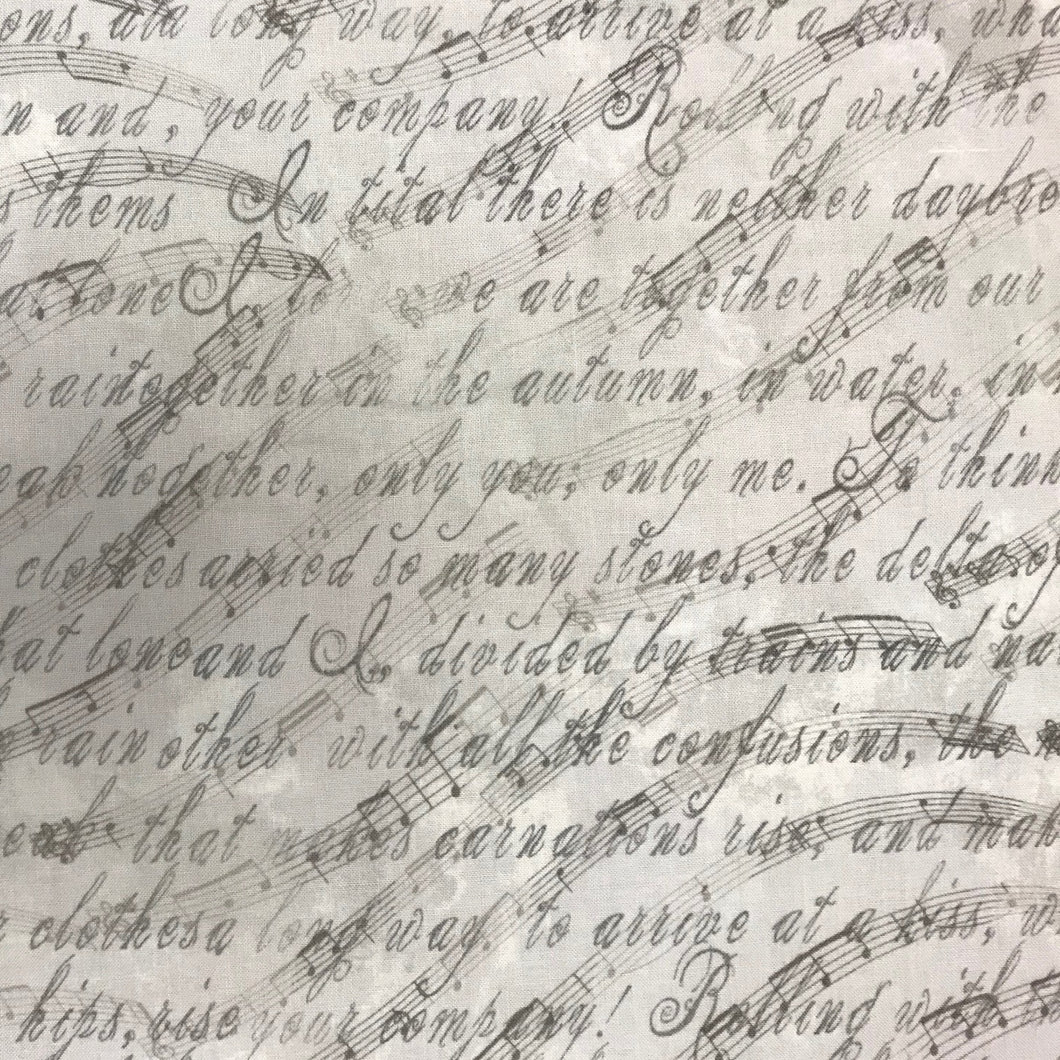 ons, ála long way, to arrive at a kiss, wha
n and, your company! Rolling with the
s thems In tital there is neither daybre
at lone I, to we are together from our
raintegether in the autumn, in water, in
only you; only me. I thin
clothes arriëd so many stones, the delta of
hat loneand I, divided by trains and na
rainother with all the confusions, the
that makes carnations rise, and man
clothesa long way, to arrive at a kiss, w
hips, rise your company! Rolling with